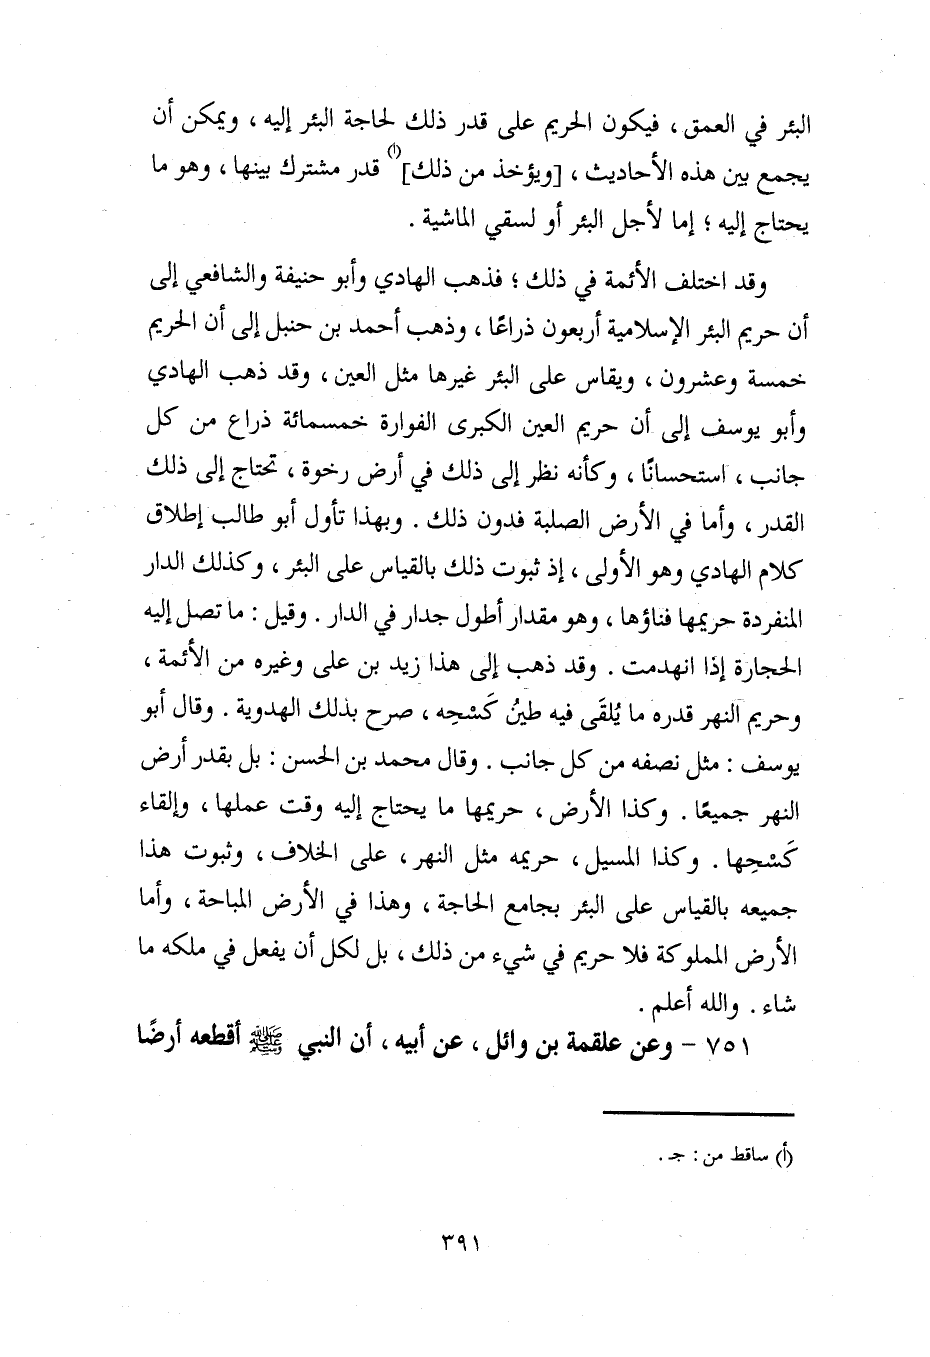 البئر في العمق ، فيكون الحريم على قدر ذلك لحاجة البئر إليه ، ويمكن أن
يجمع بين هذه الأحاديث ، [ويؤخذ من ذلك](أ) قدر مشترك بينها ، وهو ما
يحتاج إليه ؛ إما لأجل البئر أو لسقي الماشية .
وقد اختلف الأئمة في ذلك ؛ فذهب الهادي وأبو حنيفة والشافعي إلى
أن حريم البئر الإسلامية أربعون ذراعًا ، وذهب أحمد بن حنبل إلى أن الحريم
خمسة وعشرون ، ويقاس على البئر غيرها مثل العين ، وقد ذهب الهادي
وأبو يوسف إلى أن حريم العين الكبرى الفوارة خمسمائة ذراع من كل
جانب ، استحسانًا ، وكأنه نظر إلى ذلك في أرض رخوة ، تحتاج إلى ذلك
القدر ، وأما في الأرض الصلبة فدون ذلك . وبهذا تأول أبو طالب إطلاق
كلام الهادي وهو الأولى ، إذ ثبوت ذلك بالقياس على البئر ، وكذلك الدار
المنفردة حريمها فناؤها ، وهو مقدار أطول جدار في الدار . وقيل : ما تصل إليه
الحجارة إذا انهدمت . وقد ذهب إلى هذا زيد بن على وغيره من الأئمة ،
وحريم النهر قدره ما يُلقَى فيه طينُ كَسْحِه ، صرح بذلك الهدوية . وقال أبو
يوسف : مثل نصفه من كل جانب . وقال محمد بن الحسن : بل بقدر أرض
النهر جميعًا . وكذا الأرض ، حريمها ما يحتاج إليه وقت عملها ، وإلقاء
كَسْحِها . وكذا المسيل ، حريمه مثل النهر ، على الخلاف ، وثبوت هذا
جميعه بالقياس على البئر بجامع الحاجة ، وهذا في الأرض المباحة ، وأما
الأرض المملوكة فلا حريم في شيء من ذلك ، بل لكل أن يفعل في ملكه ما
شاء . والله أعلم .
٧٥١ - وعن علقمة بن وائل ، عن أبيه ، أن النبي ﷺ أقطعه أرضًا
(أ) ساقط من : جـ .
٣٩١